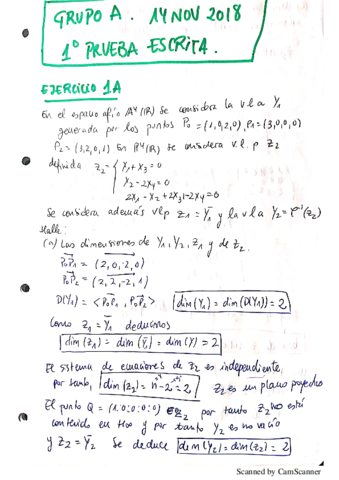 GRUPO A. 14 NOV 2018
1º PRUEBA ESCRITA.
EJERCICIO 1A
En el espacio afín A⁴(R) se considera la v l a Y₁
generada por los puntos P₀ = (1,0,2,0), P₁ = (3,0,0,0)
P₂ = (3,2,0,1) En P⁴(R) se considera v.l. p Z₂
definida Z₂ = { X₁ + X₃ = 0
X₂ - 2X₄ = 0
2X₁ - X₂ + 2X₃ - 2X₄ = 0
Se considera además vlp Z₁ = Y̅₁ y la vla Y₂ = φ⁻¹(Z₂)
Halle:
(a) Las dimensiones de Y₁, Y₂, Z₁ y de Z₂.
P₀P₁ = (2, 0, -2, 0)
P₀P₂ = (2, 2, -2, 1)
D(Y₁) = <P₀P₁, P₀P₂> dim(Y₁) = dim(D(Y₁)) = 2
Como Z₁ = Y̅₁ deducimos
dim(Z₁) = dim(Y̅₁) = dim(Y) = 2
El sistema de ecuaciones de Z₂ es independiente,
por tanto, dim(Z₂) = n - 2 = 2 Z₂ es un plano proyectivo
El punto Q = (1:0:0:0:0) ∈ Z₂ por tanto Z₂ no está
contenido en H∞ y por tanto Y₂ es no vacío
y Z₂ = Y̅₂ Se deduce dim(Y₂) = dim(Z₂) = 2
Scanned by CamScanner